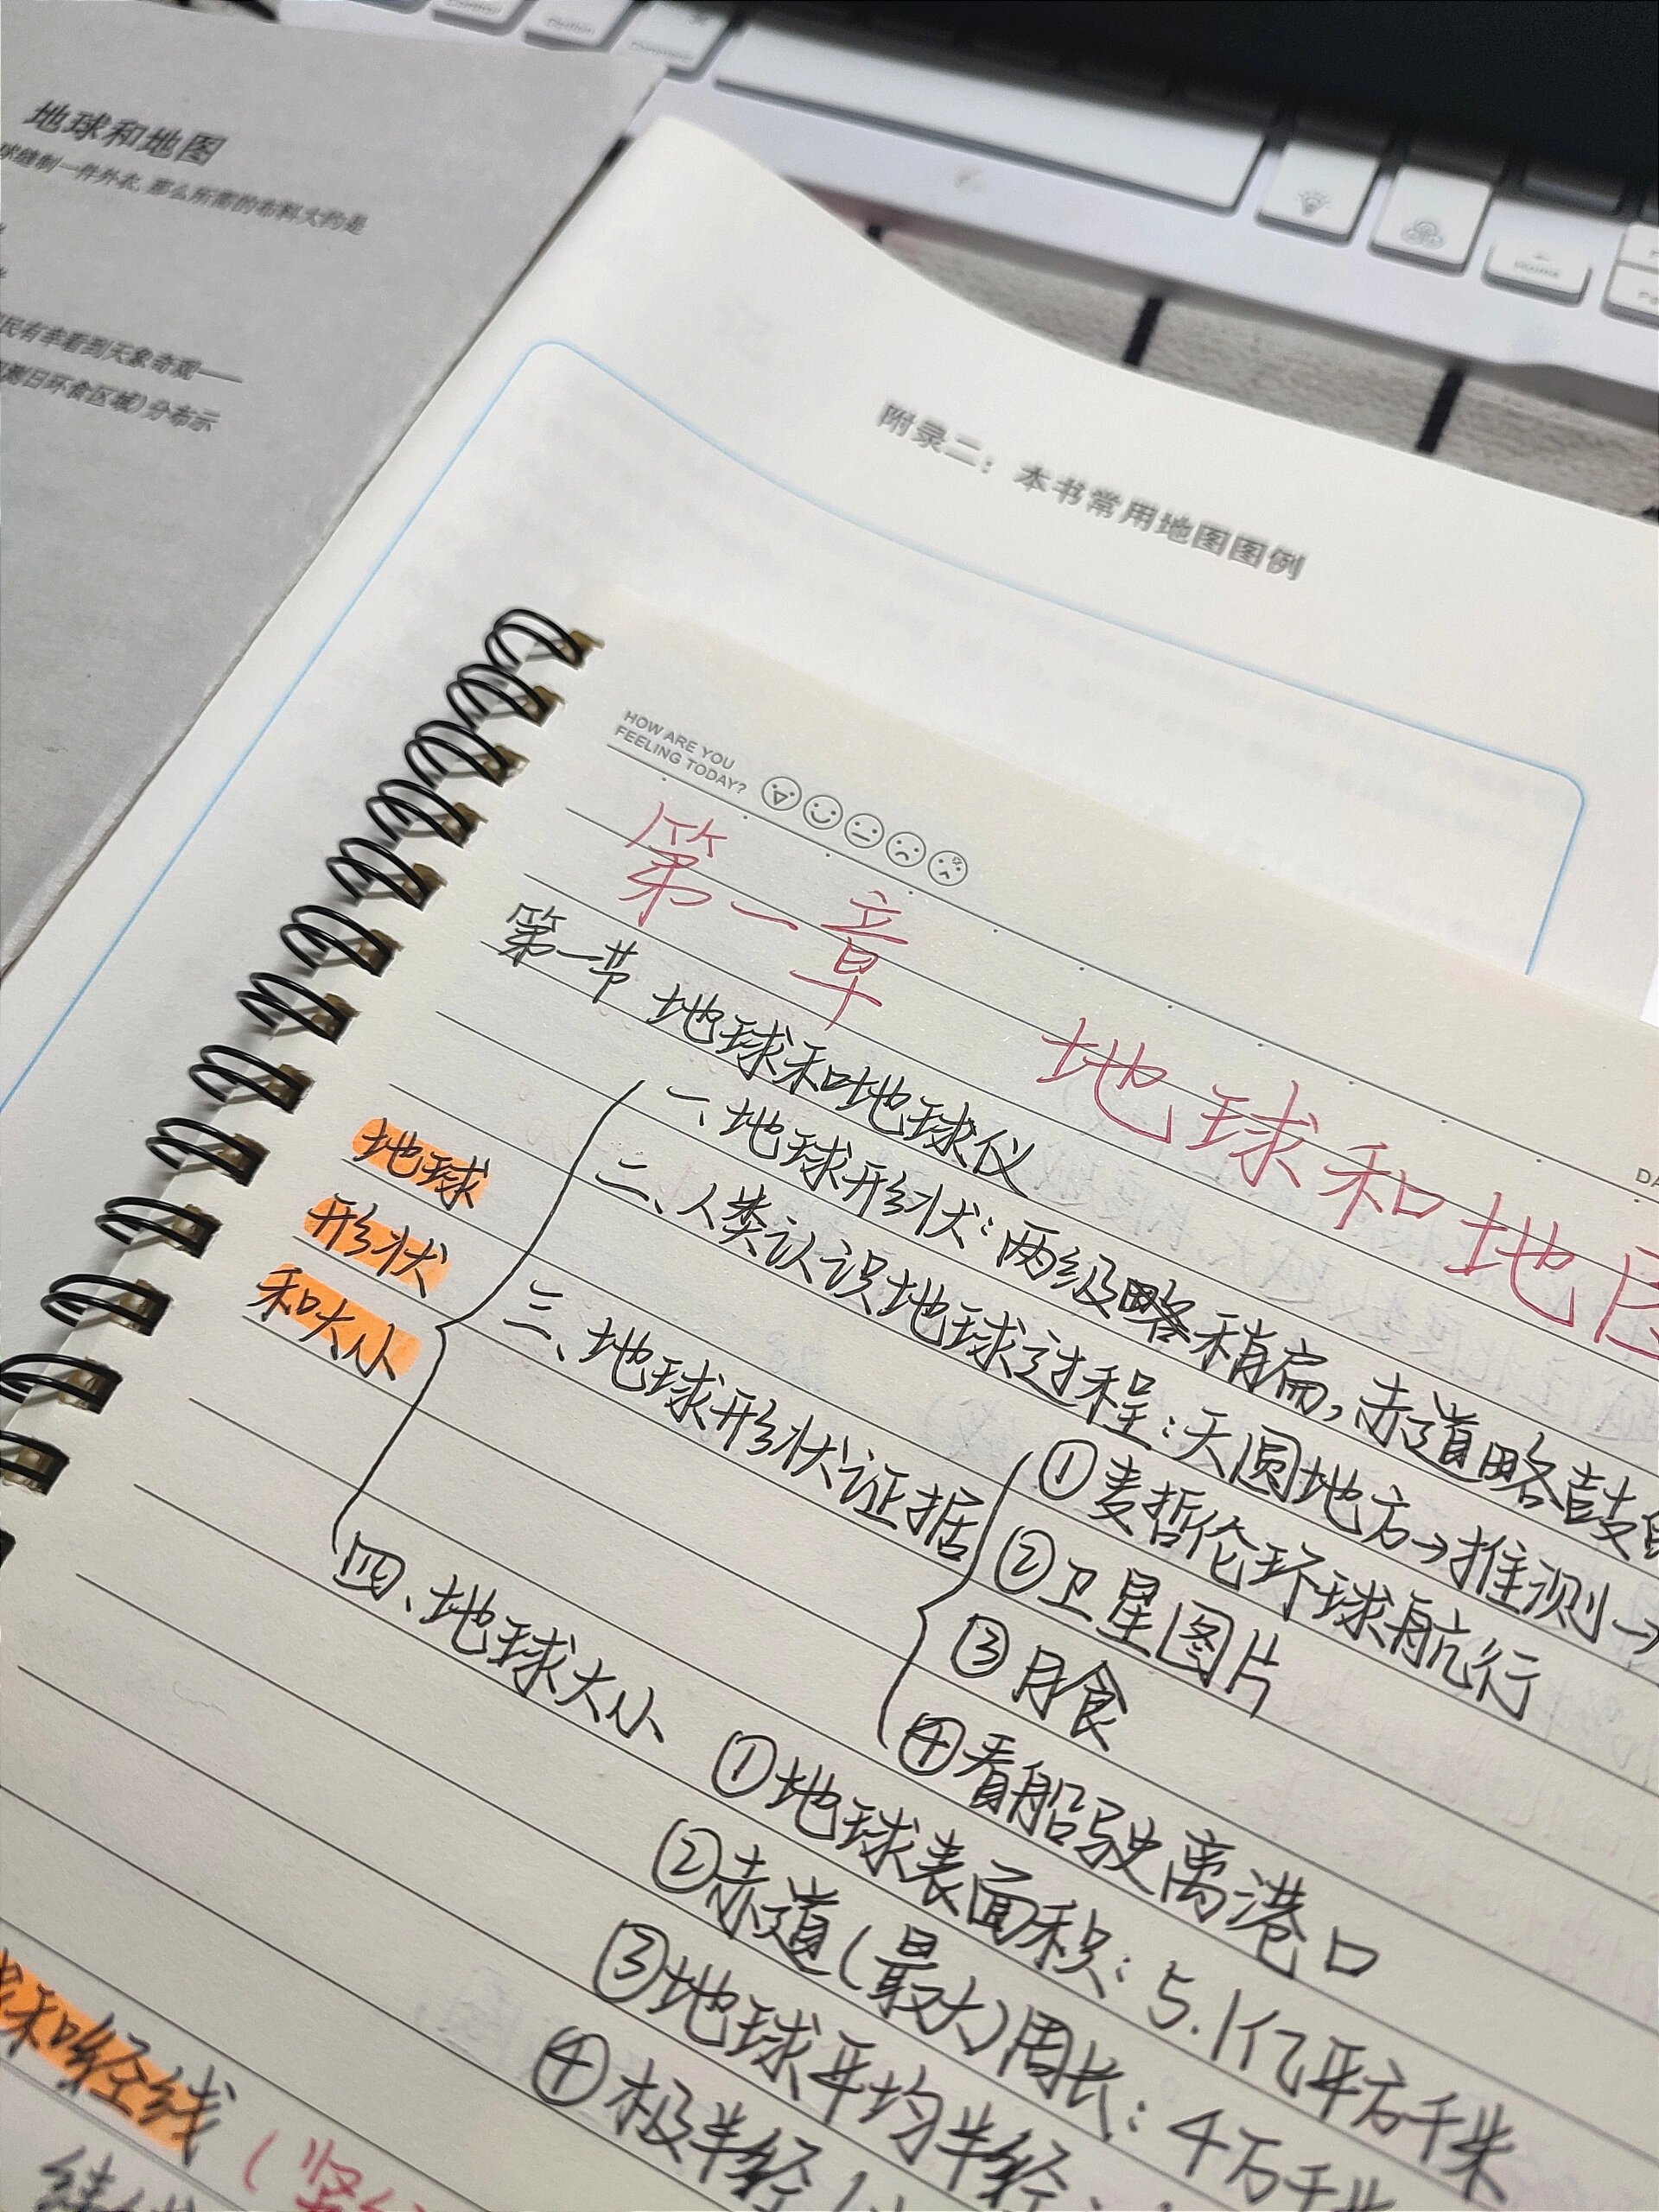 Control
Option
Command
Home
地球和地图
球缝制一件外衣,那么所需的布料大约是
民有幸看到天象奇观——
测日环食区域)分布示
附录二：本书常用地图图例
HOW ARE YOU
FEELING TODAY?
DA
第一章 地球和地
第一节 地球和地球仪
地球
形状
和大小
一、地球形状:两级略稍扁,赤道略鼓
二、人类认识地球过程:天圆地方→推测→
三、地球形状证据
①麦哲伦环球航行
②卫星图片
③月食
④看船驶离港口
四、地球大小
①地球表面积:5.1亿平方千米
②赤道(最大)周长:4万千米
③地球平均半径:
④极半径
和经线
(竖